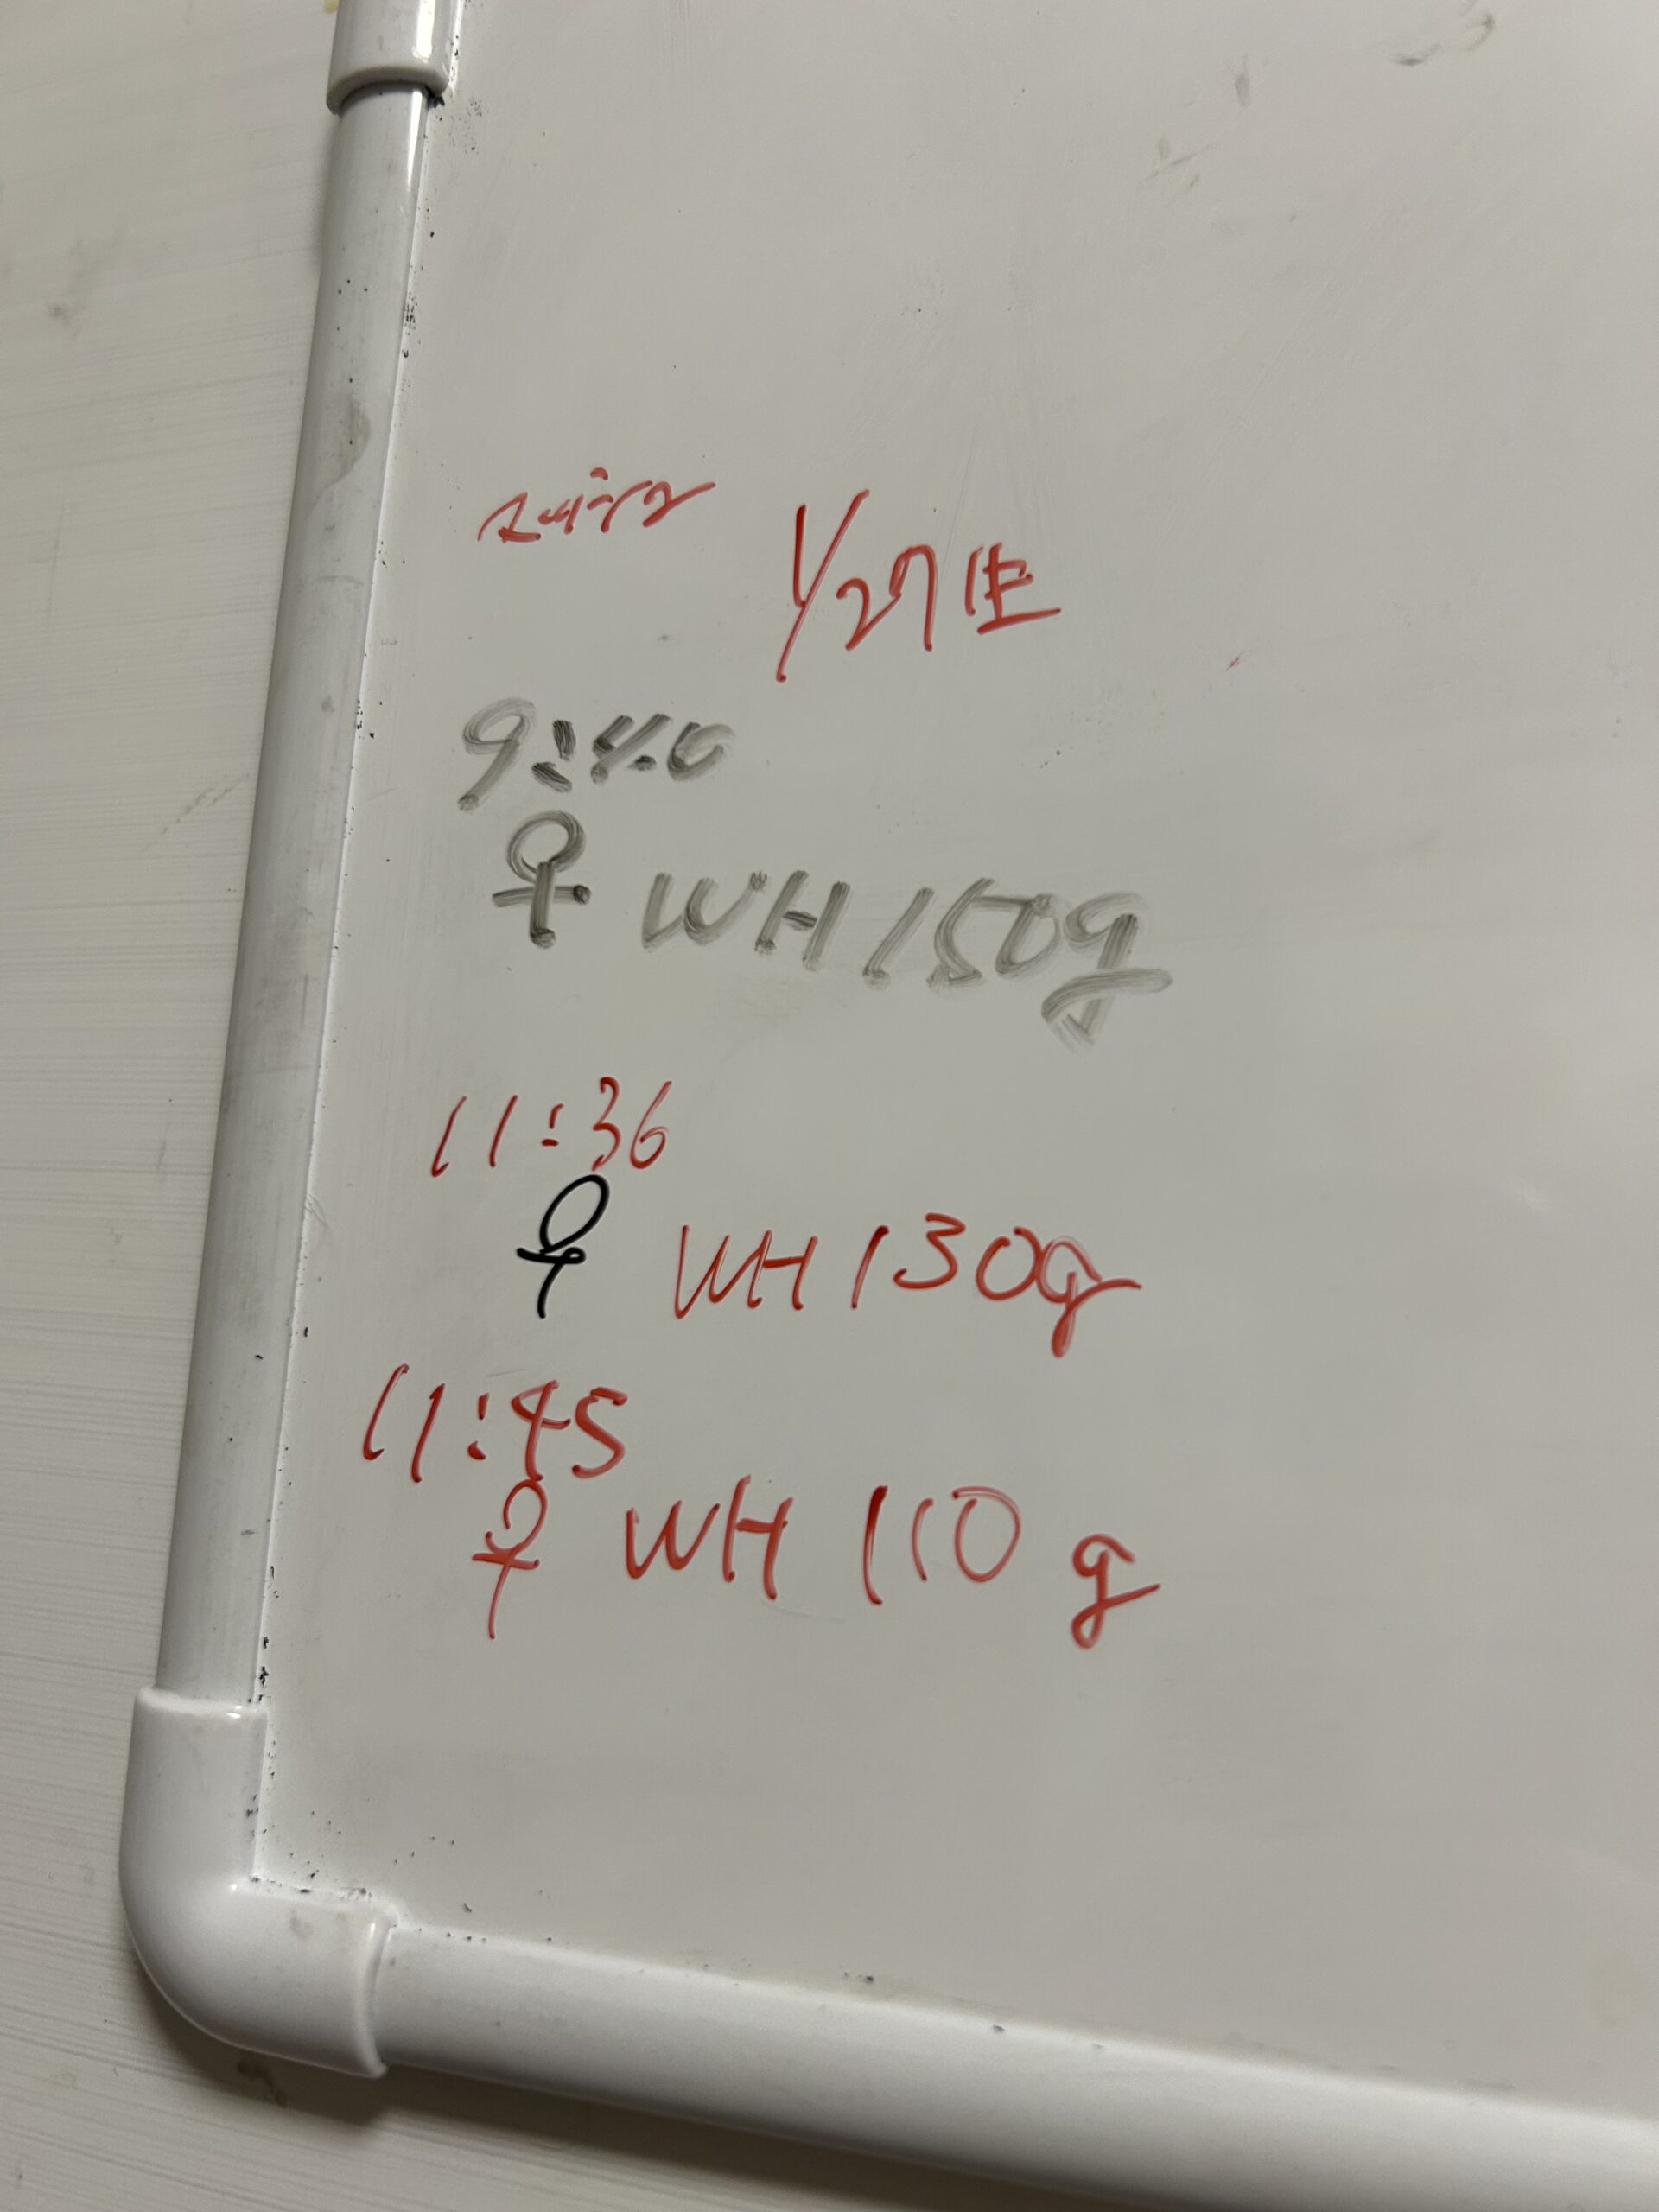 1/27生
9:40
♀ WH 150g
11:36
♀ WH 130g
11:45
♀ WH 110g